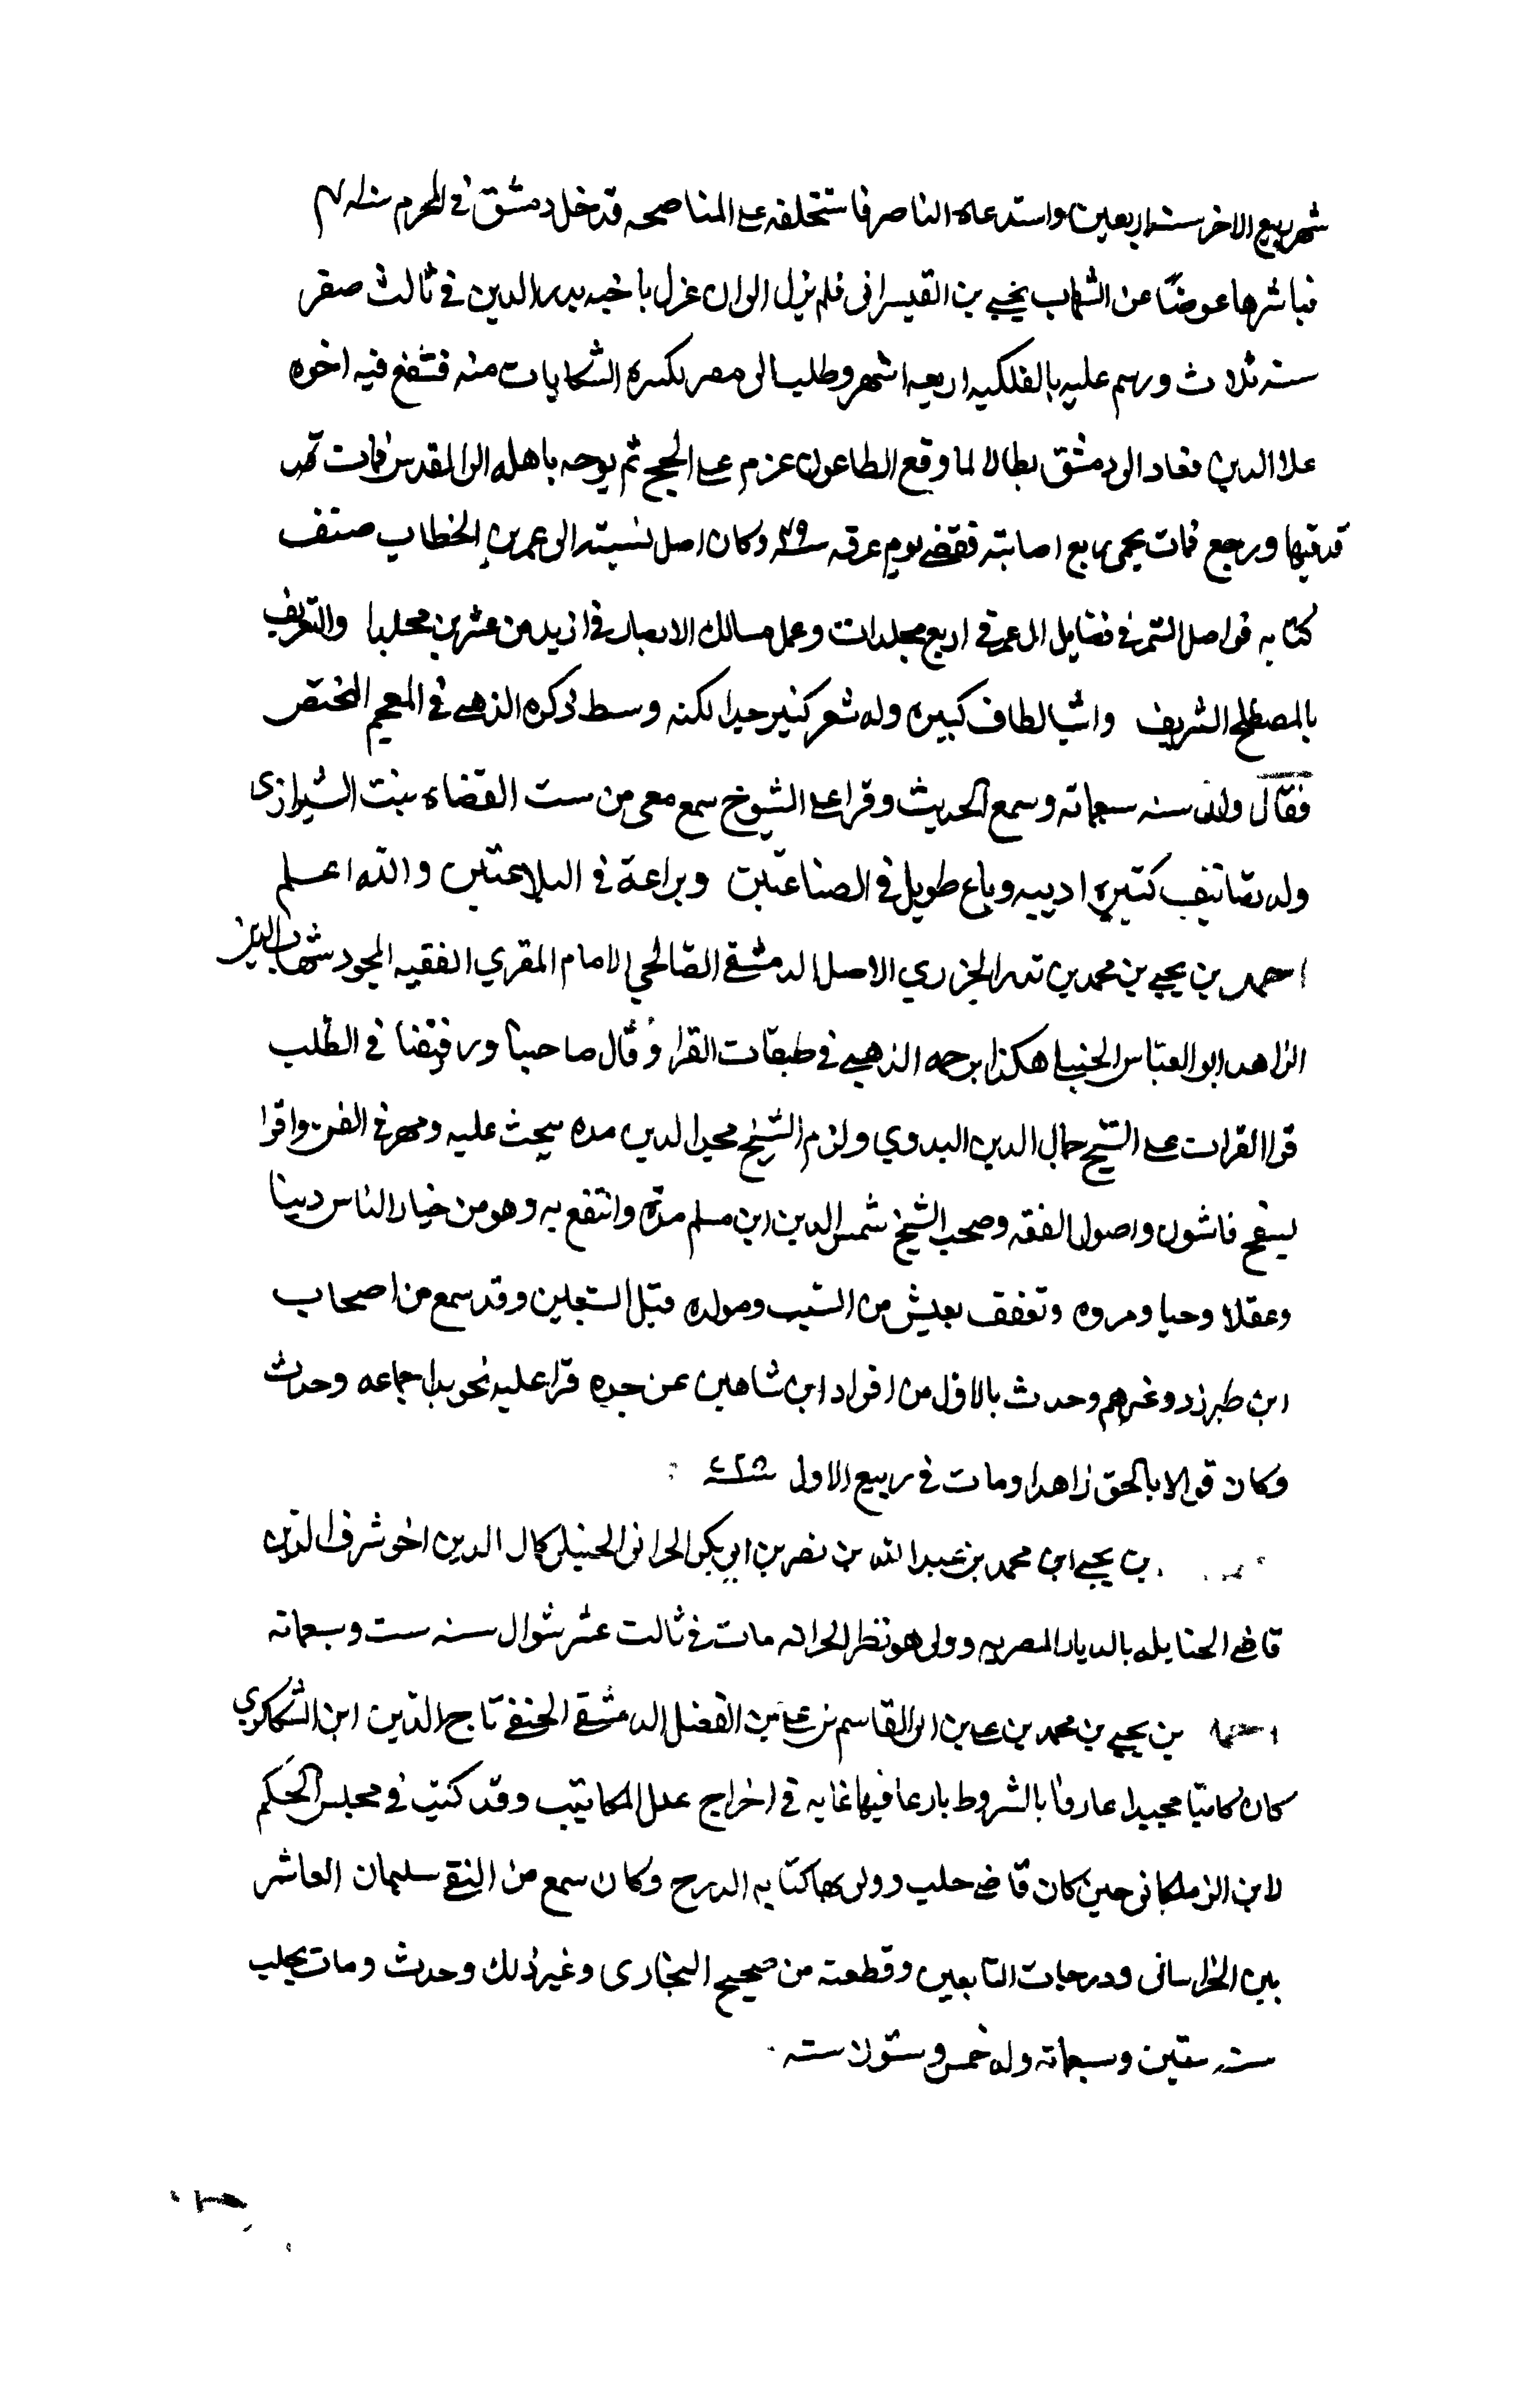 شهر ربيع الاخر سنة اربعين واستدعاه الناصر فاستحلفه على المناصحه فدخل دمشق في المحرم سنة
فباشرها عوضًا عن الشهاب يحيى بن القيسرانى فلم يزل الى ان عزل باخيه بدر الدين في ثالث صفر
سنه ثلاث ورسم عليه بالفلكيه اربعه اشهر وطلب الى مصر لكثرة الشكايات منه فشفع فيه اخوه
علا الدين فعاد الى دمشق بطالا لما وقع الطاعون عزم على الحج ثم توجه باهله الى القدس فماتت
فدفنها ورجع فمات بحمى ربع اصابته فقضى يوم عرفه سنة ٤٩ وكان اصل نسبته الى عمر بن الخطاب صنف
كتابه فواضل السمر في فضايل ال عمر في اربع مجلدات وعمل مسالك الابصار في ازيد من عشرين مجلدا والتعريف
بالمصطلح الشريف واشيا لطاف كبيره وله شعر كثير جيدا لكنه وسط ذكره الذهبي في المعجم المختص
فقال ولد سنه سبعماته وسمع الحديث وقرا على الشيوخ سمع معى من ست القضاه بنت الشيرازى
وله تصانيف كثيره ادبيه وباع طويل في الصناعتين وبراعة في البلاغتين والله اعلم
احمد بن يحيى بن محمد بن بدر الجزري الاصل الدمشقي الصالحي الامام المقري الفقيه المجود شهاب الدين
الزاهد ابو العباس الحنبلي هكذا ترجمه الذهبي في طبقات القرا وقال صاحبنا ورفيقنا في الطلب
قرا القرات على الشيخ جمال الدين البدوي ولزم الشيخ مجد الدين مده يبحث عليه ومهر في الفن واقرا
بسفح قاسيون واصول الفقه وصحب الشيخ شمس الدين ابن مسلم مدة وانتفع به وهو من خيار الناس دينا
وعقلا وحيا ومروه وتعفف يعيش من التسبب ومولده قبل السبعين وقد سمع من اصحاب
ابن طبرزد وغيرهم وحدث بالاول من افراد ابن شاهين عن جده قرا عليه تجويدا جماعه وحدث
وكان قوالا بالحق زاهدا ومات في ربيع الاول سنة
بن يحيى ابن محمد بن عبد الله بن نصر بن ابي بكر الحرانى الحنبلى كمال الدين اخو شرف الدين
قاضي الحنابله بالديار المصريه وولى هو نظر الخزانه مات في ثالث عشر شوال سنه ست وسبعماته
احمد بن يحيى بن محمد بن على بن ابى القاسم بن على بن الفضل الدمشقي الحنفي تاج الدين ابن السكاكري
كان كاتبا مجيدا عارفا بالشروط بارعا فيها غايه في اخراج علل المكاتيب وقد كتب في مجلس الحكم
لابن الزملكانى حين كان قاضي حلب وولى بها كتابه الدرج وكان سمع من التقي سليمان العاشر
من الخراسانى ودرجات التابعين وقطعته من صحيح البخارى وغير ذلك وحدث ومات بحلب
سنه ستين وسبعماته وله خمس وستون سنه